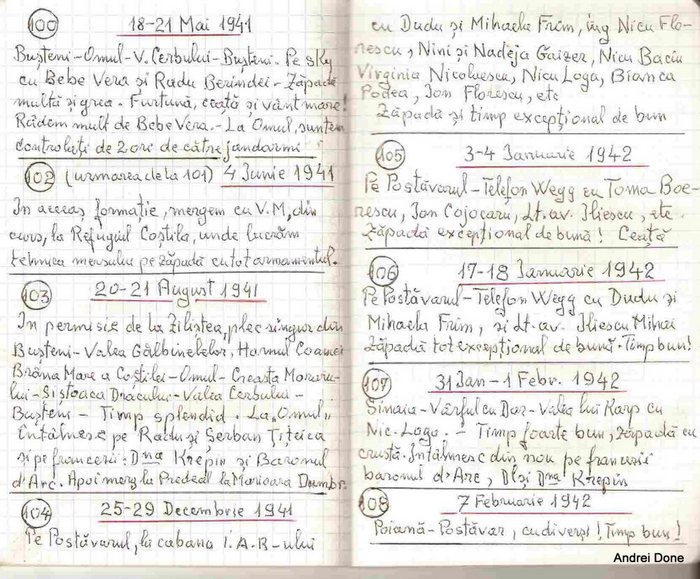 100 18-21 Mai 1941
Bușteni-Omul-V. Cerbului-Bușteni. Pe sky
cu Bebe Vera și Radu Berindei-Zăpadă
multă și grea. Furtună, ceață și vânt mare!
Râdem mult de Bebe Vera.-La Omul, suntem
controlați de 2 ori de către jandarmi
102 (urmarea de la 101) 4 Iunie 1941
În aceeaș formație, mergem cu V.M, din
curs, la Refugiul Coștila, unde lucrăm
tehnica mersului pe zăpadă cu tot armamentul.
103 20-21 August 1941
În permisie de la Zilistea, plec singur din
Bușteni-Valea Gălbinelelor, Hornul Coamei
Brâna Mare a Coștilei-Omul-Creasta Moraru-
lui-Sistoaca Dracului-Valea Cerbului-
Bușteni - Timp splendid. La „Omul”
întâlnesc pe Radu și Șerban Țițeica
și pe francezii: Dna Krépin și Baronul
d'Arc. Apoi merg la Predeal la Marioara Dumbr.
104 25-29 Decembrie 1941
Pe Postăvarul, la cabana I.A.R-ului
cu Dudu și Mihaela Frim, ing Nicu Flo-
rescu, Nini și Nadeja Gaizer, Nicu Baciu
Virginia Nicoluescu, Nicu Loga, Bianca
Podea, Ion Florescu, etc
Zăpadă și timp excepțional de bun
105 3-4 Ianuarie 1942
Pe Postăvarul-Telefon Wegg cu Toma Boe-
rescu, Ion Cojocaru, Lt. av. Iliescu, etc
Zăpadă excepțional de bună! Ceață
106 17-18 Ianuarie 1942
Pe Postăvarul-Telefon Wegg cu Dudu și
Mihaela Frim, și Lt-av. Iliescu Mihai
Zăpadă tot excepțional de bună. Timp bun!
107 31 Ian-1 Febr. 1942
Sinaia-Vârful cu Dor-Valea lui Karp cu
Nic. Loga. - Timp foarte bun, zăpadă cu
crustă. Întâlnesc din nou pe francezii
baronul d'Arc, Dl și Dna Krepin
108 7 Februarie 1942
Poiană-Postăvar, cu diverși! Timp bun!
Andrei Done